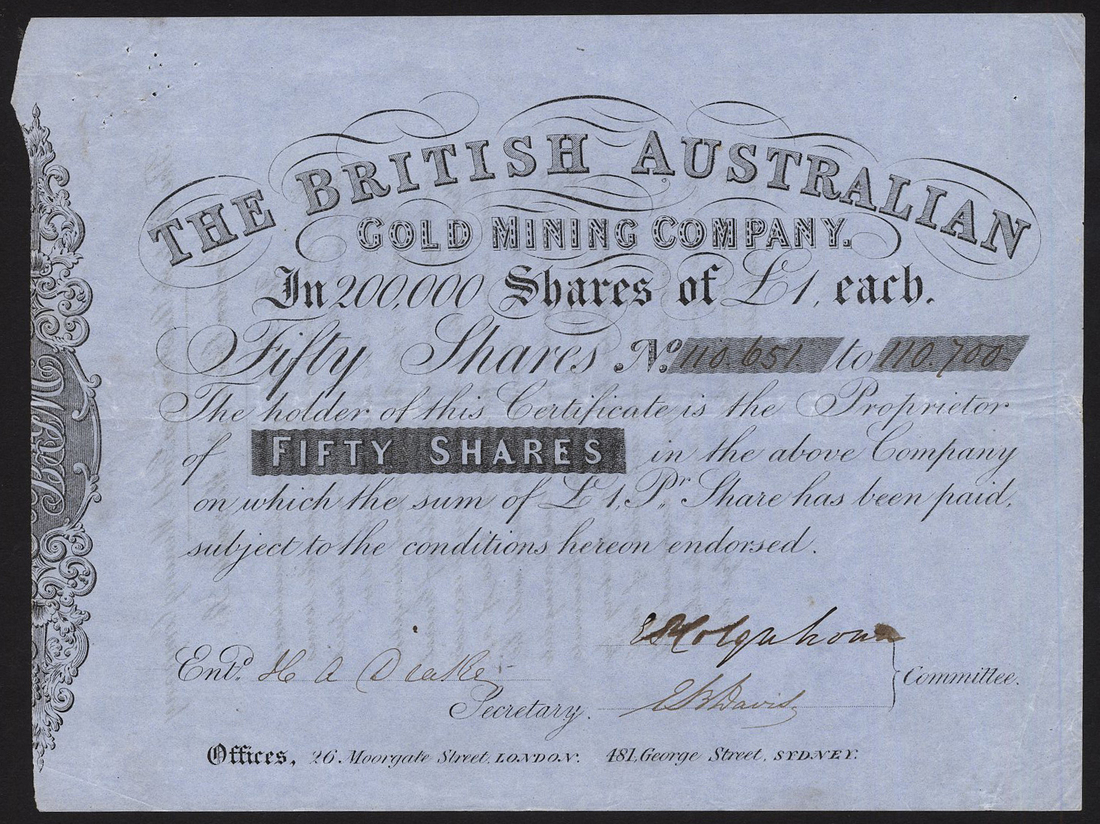 THE BRITISH AUSTRALIAN
GOLD MINING COMPANY.
In 200,000 Shares of £1, each.
Fifty Shares No. 110.651. to 110.700.
The holder of this Certificate is the Proprietor
of FIFTY SHARES in the above Company
on which the sum of £1, Pr. Share has been paid,
subject to the conditions hereon endorsed.
Colquhoun
Entd. H A Drake
Committee.
Secretary. Davis
Offices, 26. Moorgate Street, LONDON. 481, George Street, SYDNEY.